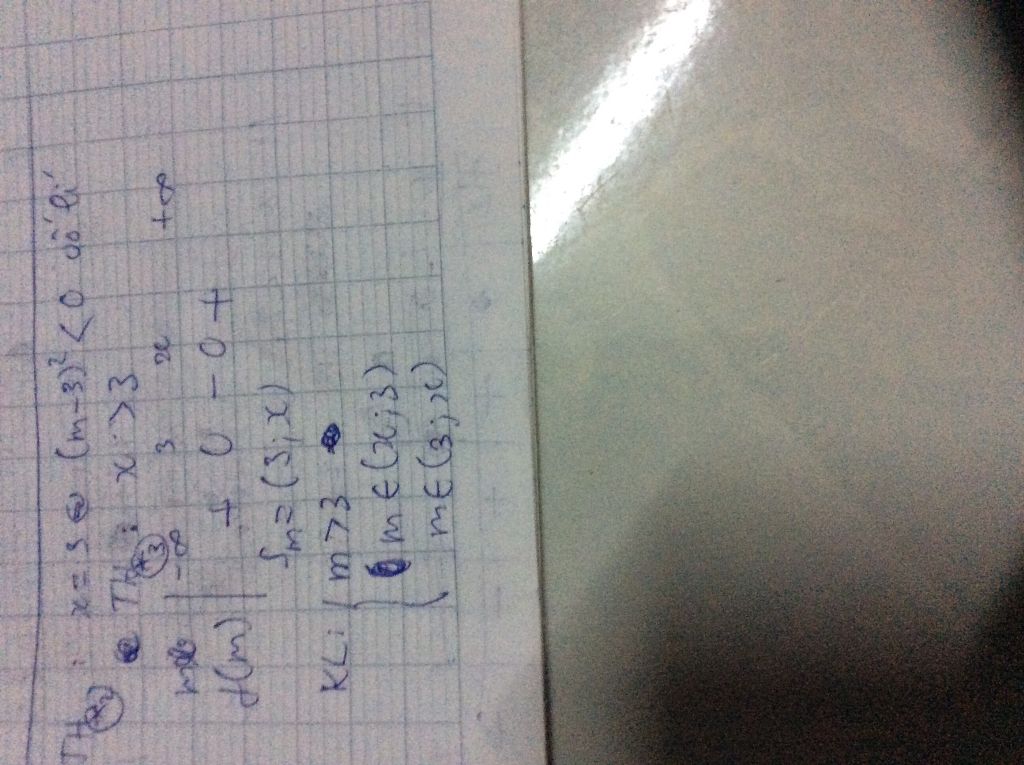 TH(*2): x = 3 (m-3)² < 0 vô lí
TH(*3): x > 3
m -∞ 3 x +∞
f(m) + 0 - 0 +
Sm = (3; x)
KL: { m > 3
m ∈ (x; 3)
m ∈ (3; x)